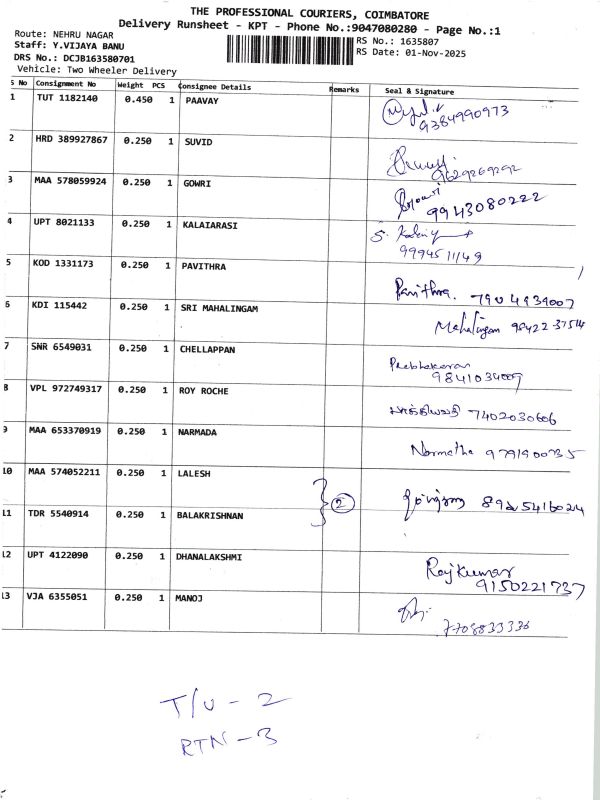 THE PROFESSIONAL COURIERS, COIMBATORE
Delivery Runsheet - KPT - Phone No.:9047080280 - Page No.:1
Route: NEHRU NAGAR
Staff: Y.VIJAYA BANU
RS No.: 1635807
DRS No.: DCJB163580701
RS Date: 01-Nov-2025
Vehicle: Two Wheeler Delivery
S No Consignment No Weight PCS Consignee Details Remarks Seal & Signature
1 TUT 1182140 0.450 1 PAAVAY
9384990973
2 HRD 389927867 0.250 1 SUVID
9629269292
3 MAA 578059924 0.250 1 GOWRI
Gowri
9943080222
4 UPT 8021133 0.250 1 KALAIARASI
9994511149
5 KOD 1331173 0.250 1 PAVITHRA
Pavithra. 7904939007
6 KDI 115442 0.250 1 SRI MAHALINGAM
Mahalingam 98422 37514
7 SNR 6549031 0.250 1 CHELLAPPAN
Prabhakaran
9841034009
8 VPL 972749317 0.250 1 ROY ROCHE
7402030606
9 MAA 653370919 0.250 1 NARMADA
Narmatha 9791900735
10 MAA 574052211 0.250 1 LALESH
2 8925416024
11 TDR 5540914 0.250 1 BALAKRISHNAN
12 UPT 4122090 0.250 1 DHANALAKSHMI
Rajkumar
9150221737
13 VJA 6355051 0.250 1 MANOJ
7708833336
T/U - 2
RTN - 3